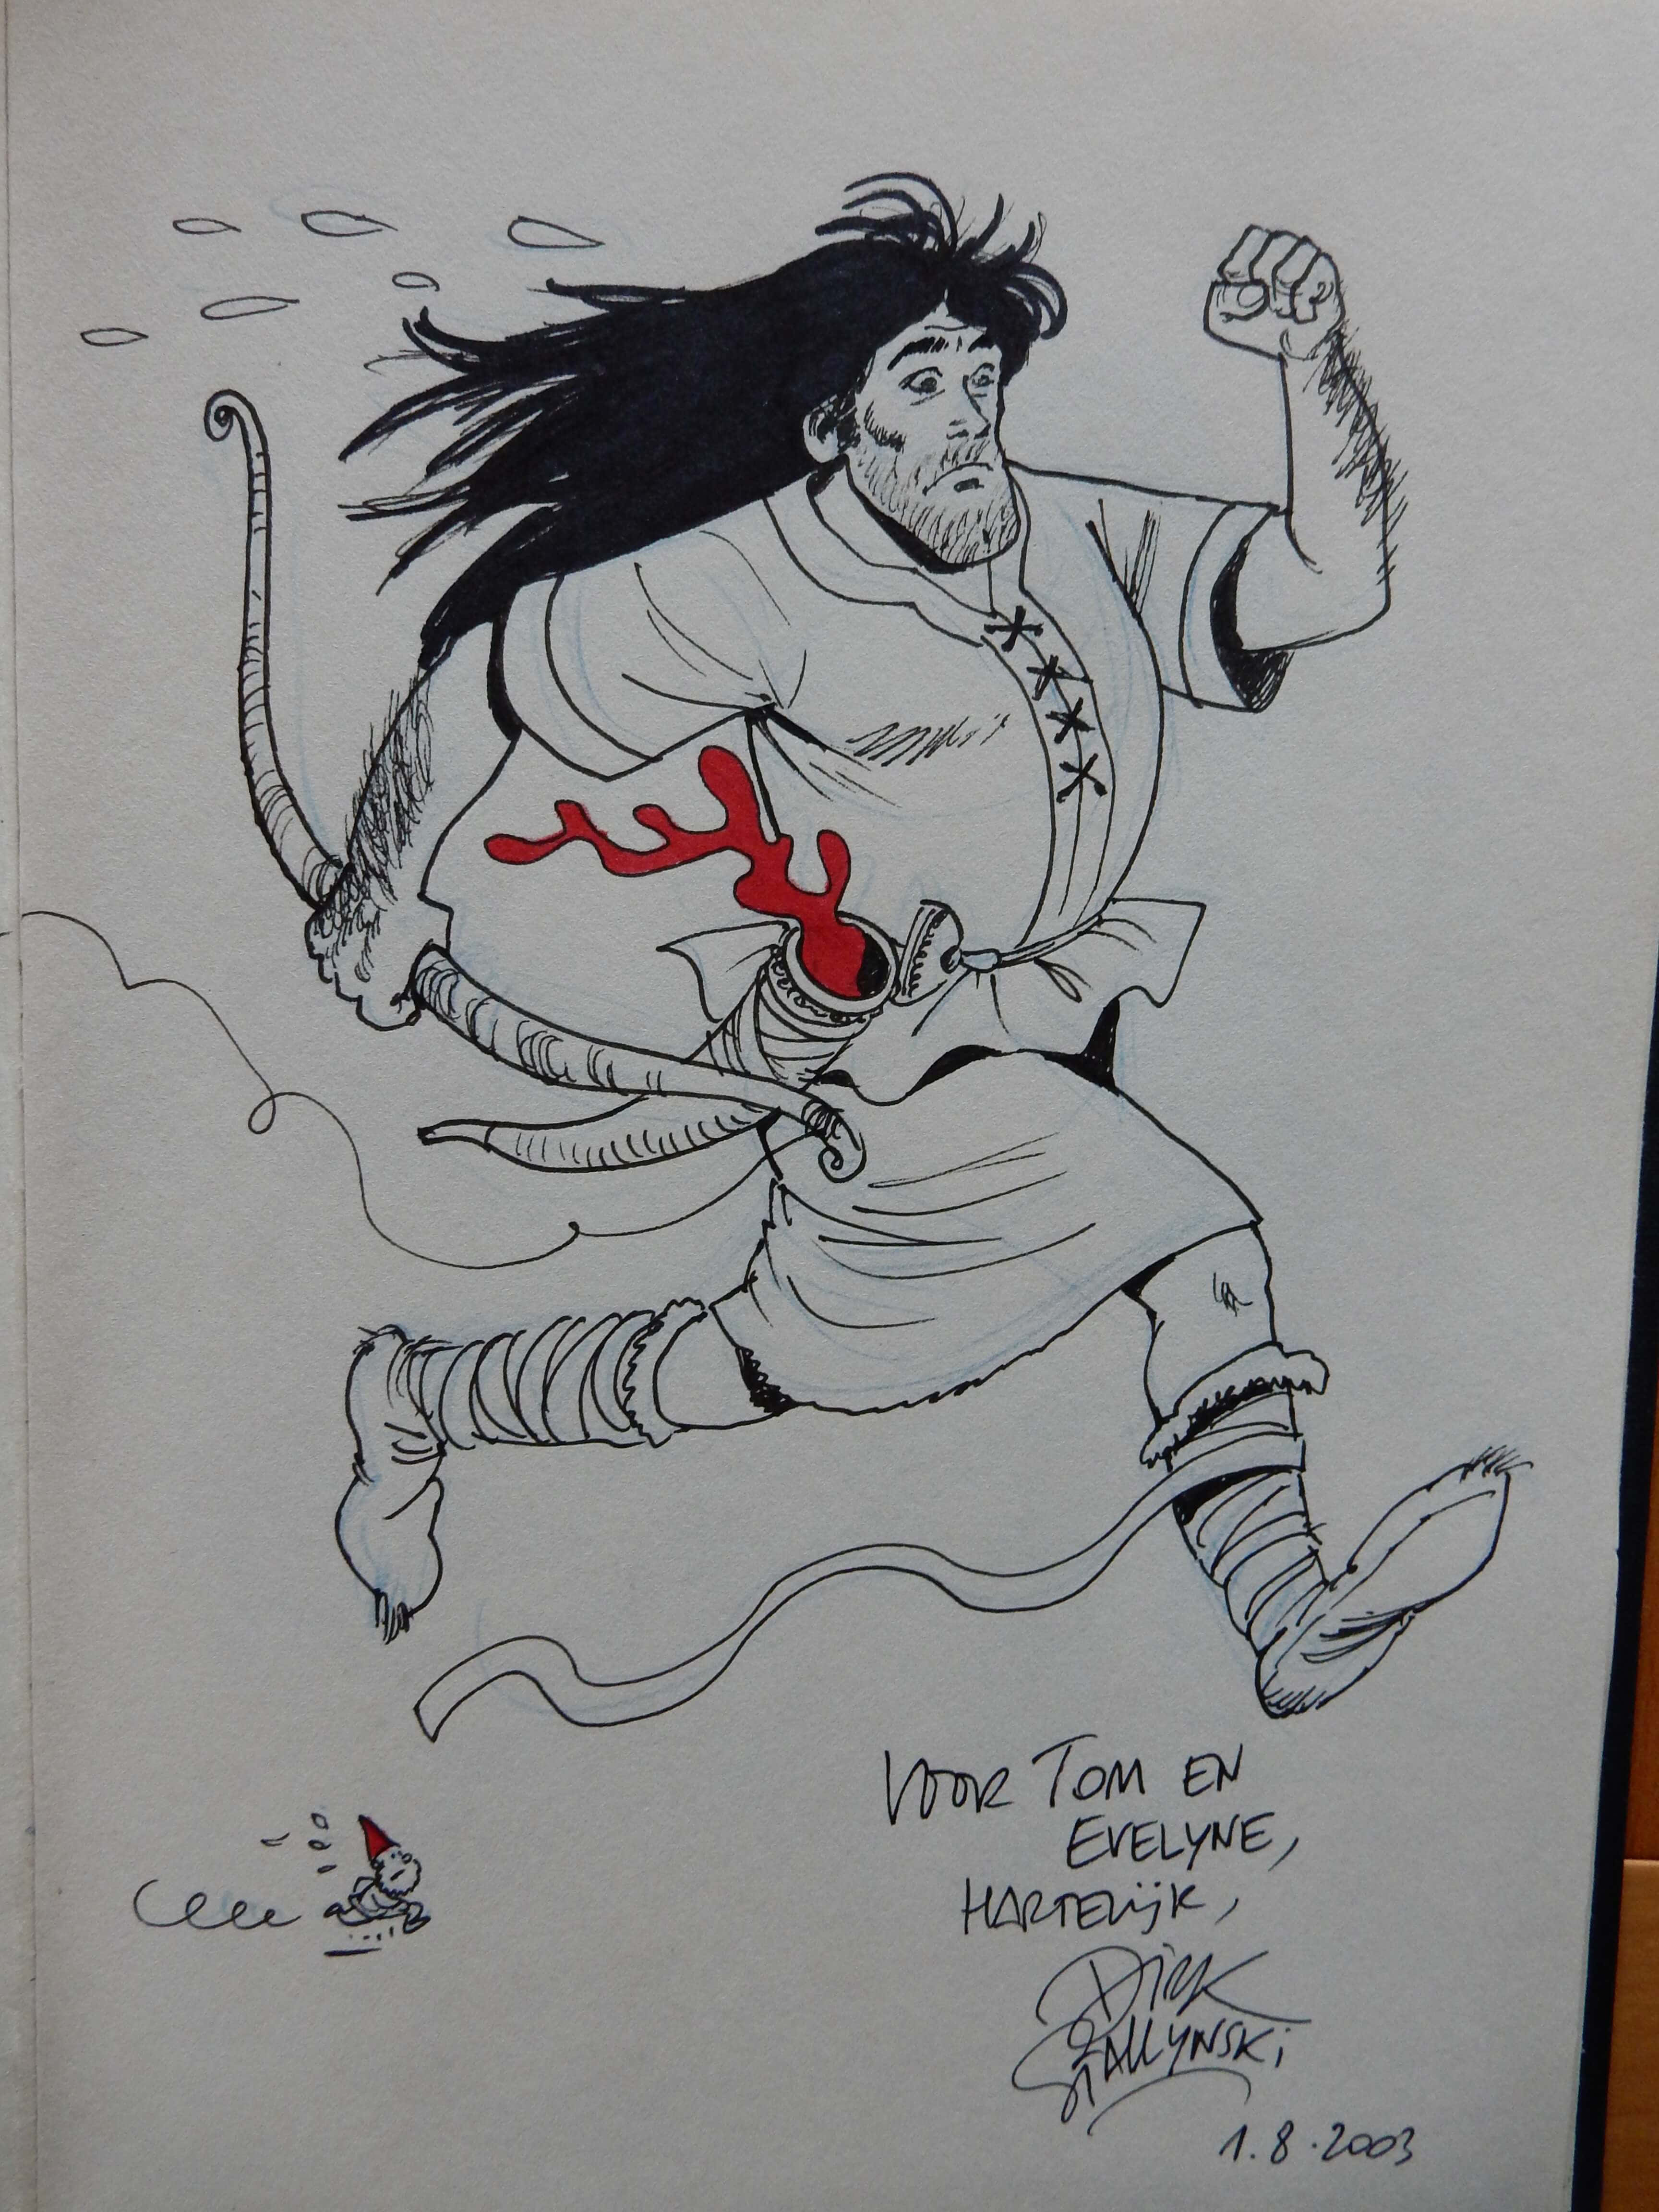 VOOR TOM EN
EVELYNE,
HARTELIJK,
Dirk
STALLYNSKi
1.8.2003